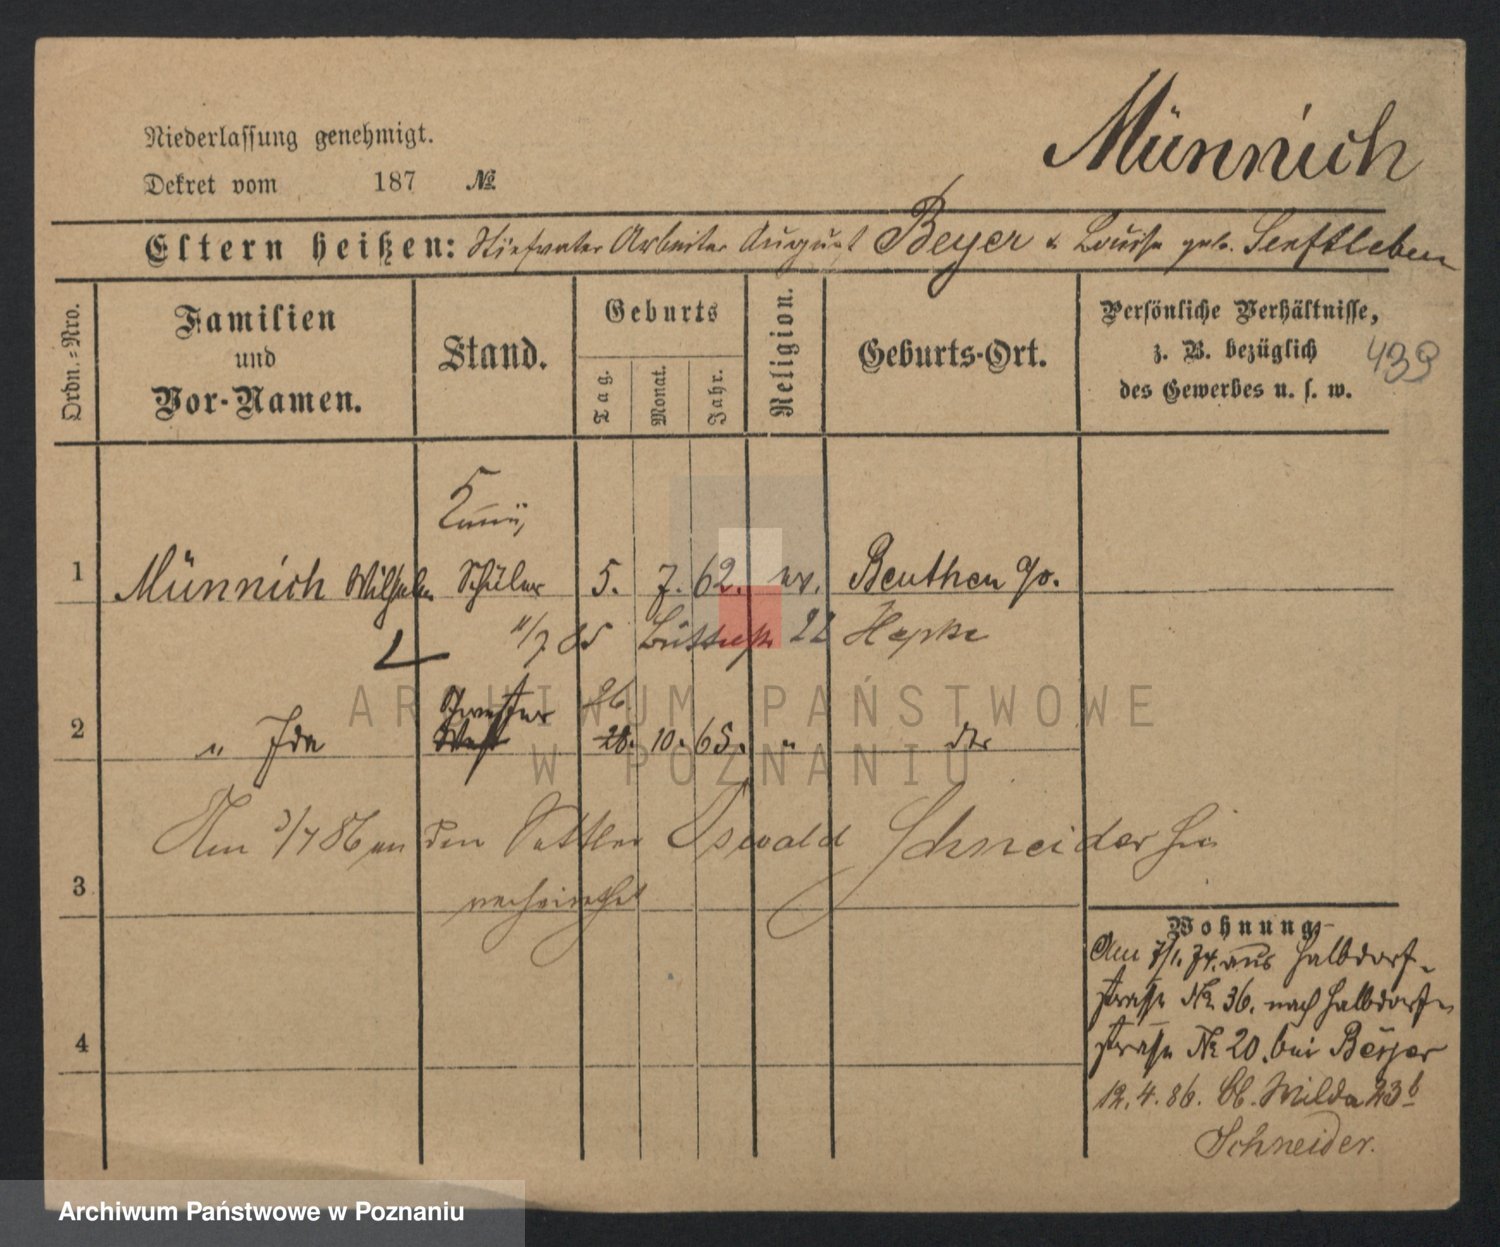 Münnich
Niederlassung genehmigt.
Dekret vom 187 №
Eltern heißen: Stiefvater Arbeiter August Beyer & Louise geb. Senftleben
Ordn.-Nro.
Familien
und
Vor-Namen.
Stand.
Geburts
Tag.
Monat.
Jahr.
Religion.
Geburts-Ort.
Persönliche Verhältnisse,
z. B. bezüglich
des Gewerbes u. s. w.
439
1 Münnich Wilhelm Schüler 5. 7. 62. ev. Beuthen
/7 85 22
Schwester 26.
2 " Ida 28. 10. 65. " dto
Am 3/7 86 an den Sattler Oswald Schneider hier
verheirathet
3
4
Wohnung
Am 7/1. 74. aus Halbdorf-
strasse № 36. nach Halbdorf-
strasse № 20. bei Beyer
12.4.86. Wilda 23b
Schneider.
ARCHIWUM PAŃSTWOWE
W POZNANIU
Archiwum Państwowe w Poznaniu